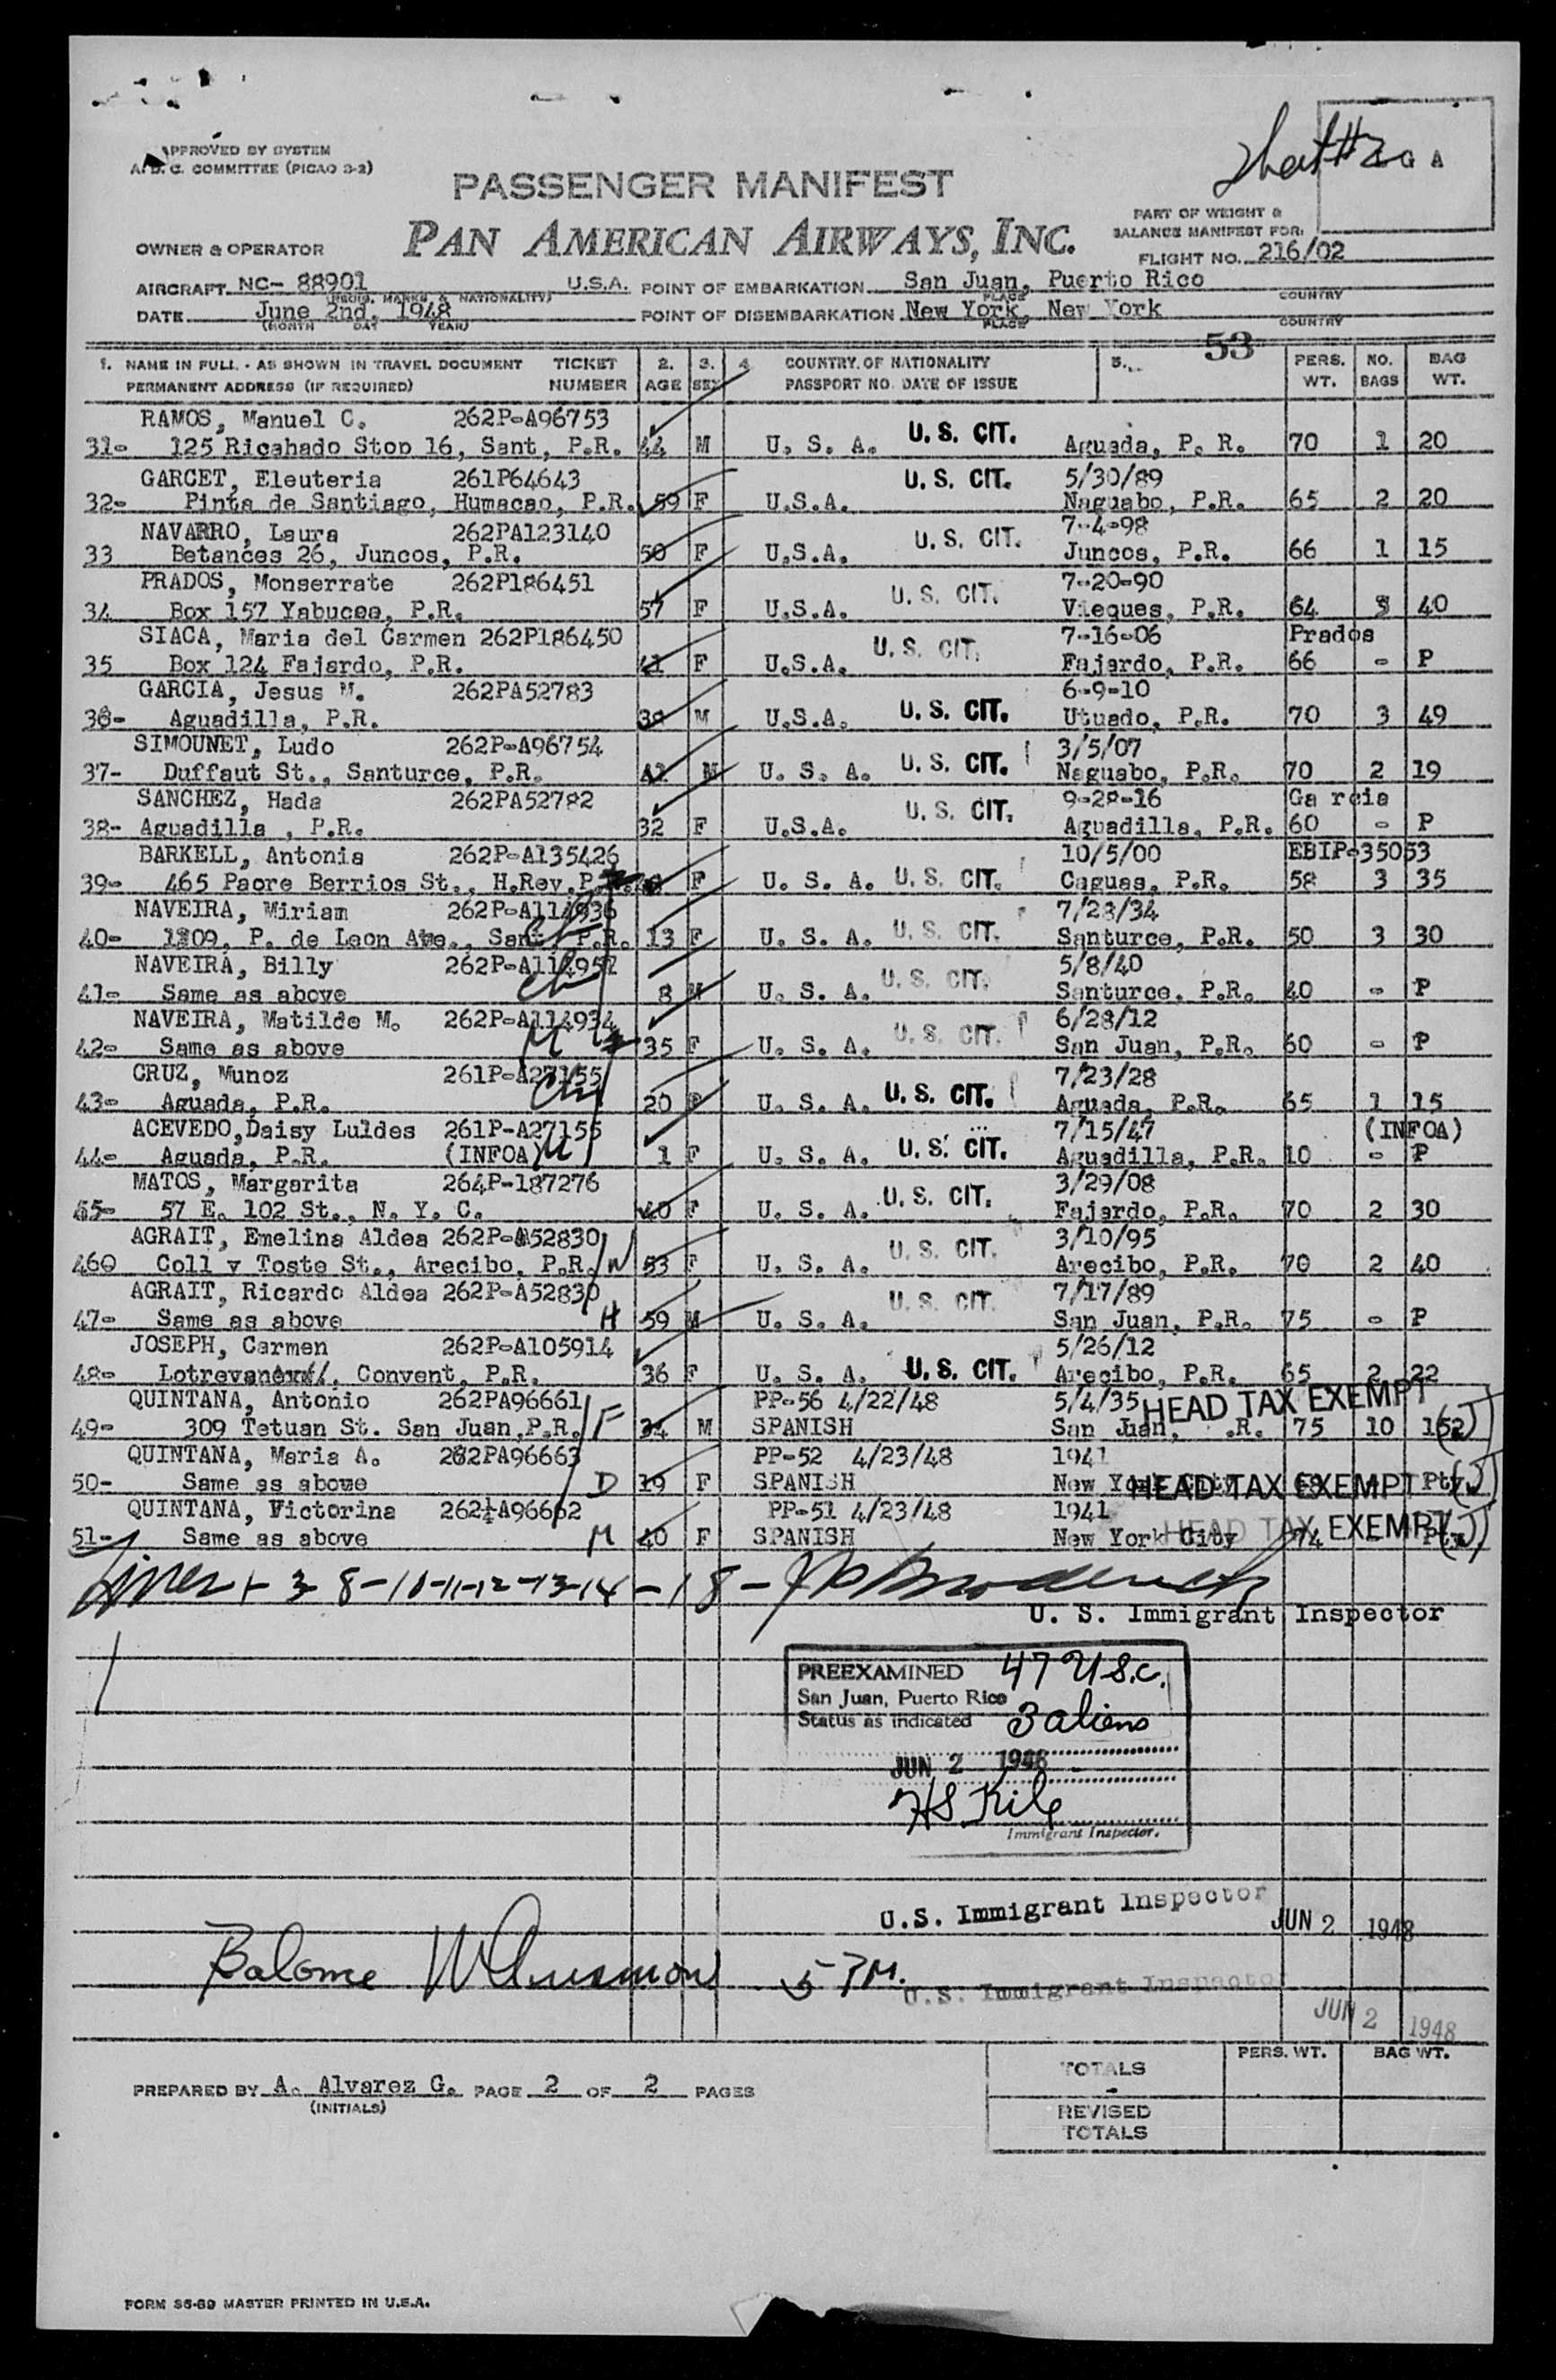 APPROVED BY SYSTEM
A. D. C. COMMITTEE (PICAO 3-2)
Sheet #2 G A
PASSENGER MANIFEST
PART OF WEIGHT &
BALANCE MANIFEST FOR:
OWNER & OPERATOR PAN AMERICAN AIRWAYS, INC.
FLIGHT NO. 216/02
AIRCRAFT NC- 88901 U.S.A. POINT OF EMBARKATION San Juan, Puerto Rico
(REGIS. MARKS & NATIONALITY) PLACE COUNTRY
DATE June 2nd. 1948 POINT OF DISEMBARKATION New York, New York
(MONTH DAY YEAR) PLACE COUNTRY
53
1. NAME IN FULL - AS SHOWN IN TRAVEL DOCUMENT TICKET 2. 3. 4. COUNTRY OF NATIONALITY 5. PERS. NO. BAG
PERMANENT ADDRESS (IF REQUIRED) NUMBER AGE SEX PASSPORT NO. DATE OF ISSUE WT. BAGS WT.
RAMOS, Manuel C. 262P-A96753
31- 125 Ricahado Stop 16, Sant, P.R. 44 M U. S. A. U. S. CIT. Aguada, P. R. 70 1 20
GARCET, Eleuteria 261P64643 U. S. CIT. 5/30/89
32- Pinta de Santiago, Humacao, P.R. 59 F U.S.A. Naguabo, P.R. 65 2 20
NAVARRO, Laura 262PA123140 U. S. CIT. 7-4-98
33 Betances 26, Juncos, P.R. 50 F U.S.A. Juncos, P.R. 66 1 15
PRADOS, Monserrate 262P186451 U. S. CIT. 7-20-90
34 Box 157 Yabucea, P.R. 57 F U.S.A. Vieques, P.R. 64 3 40
SIACA, Maria del Carmen 262P186450 U. S. CIT. 7-16-06 Prados
35 Box 124 Fajardo, P.R. 41 F U.S.A. Fajardo, P.R. 66 - P
GARCIA, Jesus M. 262PA52783 6-9-10
36- Aguadilla, P.R. 38 M U.S.A. U. S. CIT. Utuado, P.R. 70 3 49
SIMOUNET, Ludo 262P-A96754 3/5/07
37- Duffaut St., Santurce, P.R. 41 M U. S. A. U. S. CIT. Naguabo, P.R. 70 2 19
SANCHEZ, Hada 262PA52782 U. S. CIT. 9-28-16 Ga rcia
38- Aguadilla , P.R. 32 F U.S.A. Aguadilla, P.R. 60 - P
BARKELL, Antonia 262P-A135426 10/5/00 EBIP-35053
39- 465 Paore Berrios St., H.Rey, F U. S. A. U. S. CIT. Caguas, P.R. 58 3 35
NAVEIRA, Miriam 262P-A114936 7/23/34
40- 1809, P. de Leon Ave., Sant P.R. 13 F U. S. A. U. S. CIT. Santurce, P.R. 50 3 30
NAVEIRA, Billy 262P-A114957 5/8/40
41- Same as above ch 8 M U. S. A. U. S. CIT. Santurce, P.R. 40 - P
NAVEIRA, Matilde M. 262P-A114934 6/28/12
42- Same as above M 35 F U. S. A. U. S. CIT. San Juan, P.R. 60 - P
CRUZ, Munoz 261P-A27155 7/23/28
43- Aguada, P.R. ch 20 F U. S. A. U. S. CIT. Aguada, P.R. 65 1 15
ACEVEDO,Daisy Luldes 261P-A27155 7/15/47 (INFOA)
44- Aguada, P.R. (INFOA) M 1 F U. S. A. U. S. CIT. Aguadilla, P.R. 10 - P
MATOS, Margarita 264P-187276 3/29/08
45- 57 E. 102 St., N. Y. C. 40 F U. S. A. U. S. CIT. Fajardo, P.R. 70 2 30
AGRAIT, Emelina Aldea 262P-A52830 3/10/95
460 Coll y Toste St., Arecibo, P.R. W 53 F U. S. A. U. S. CIT. Arecibo, P.R. 70 2 40
AGRAIT, Ricardo Aldea 262P-A52830 U. S. CIT. 7/17/89
47- Same as above H 59 M U. S. A. San Juan, P.R. 75 - P
JOSEPH, Carmen 262P-A105914 5/26/12
48- Convent, P.R. 36 F U. S. A. U. S. CIT. Arecibo, P.R. 65 2 22
QUINTANA, Antonio 262PA96661 PP-56 4/22/48 5/4/35 HEAD TAX EXEMPT
49- 309 Tetuan St. San Juan,P.R. F 34 M SPANISH San Juan, .R. 75 10 152 (J)
QUINTANA, Maria A. 262PA96663 PP-52 4/23/48 1941
50- Same as above D 19 F SPANISH New York City HEAD TAX EXEMPT Pty (J)
QUINTANA, Victorina 262-A96662 PP-51 4/23/48 1941
51- Same as above M 40 F SPANISH New York City HEAD TAX EXEMPT 74 - (J)
Lines 1-3-8-10-11-12-13-14-18-
U. S. Immigrant Inspector
PREEXAMINED 47 U.S.C.
San Juan, Puerto Rico
Status as indicated 3 aliens
JUN 2 1948
HS Kile
Immigrant Inspector.
U.S. Immigrant Inspector JUN 2 1948
5 PM.
U.S. Immigrant Inspector JUN 2 1948
PREPARED BY A. Alvarez G. PAGE 2 OF 2 PAGES
(INITIALS)
PERS. WT. BAG WT.
TOTALS
REVISED
TOTALS
FORM S6-69 MASTER PRINTED IN U.S.A.